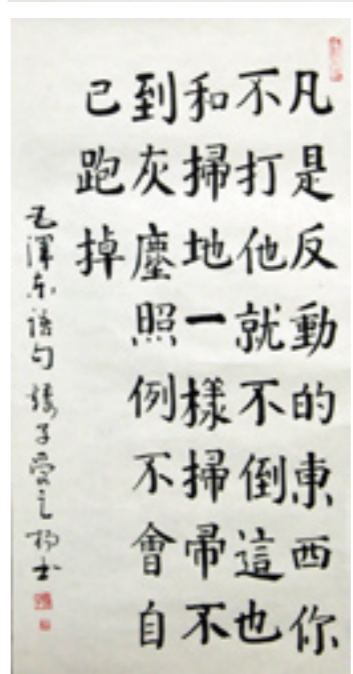 凡是反動的東西你
不打他就不倒這也
和掃地一樣掃帚不
到灰塵照例不會自
己跑掉
毛澤东語句